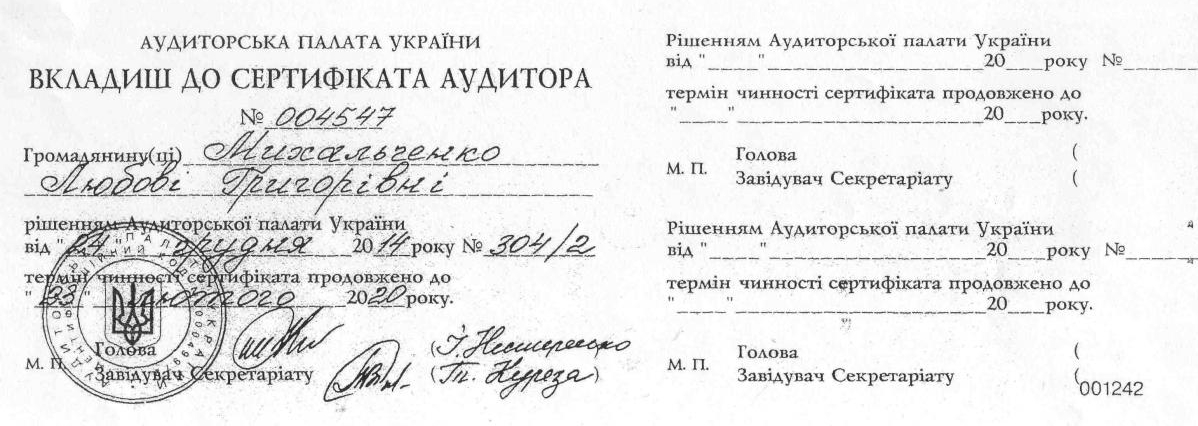 АУДИТОРСЬКА ПАЛАТА УКРАЇНИ
ВКЛАДИШ ДО СЕРТИФІКАТА АУДИТОРА
№ 004547
Громадянину(ці) Михальченко
Любові Григорівні
рішенням Аудиторської палати України
від "24" грудня 2014 року № 304/2
термін чинності сертифіката продовжено до
"23" лютого 2020 року.
Голова
М. П. Завідувач Секретаріату
Рішенням Аудиторської палати України
від "____"____________________20___року №_______
термін чинності сертифіката продовжено до
"____"____________________20___року.
Голова (
М. П.
Завідувач Секретаріату (
Рішенням Аудиторської палати України
від "____"____________________20___року №_______
термін чинності сертифіката продовжено до
"____"____________________20___року.
Голова (
М. П.
Завідувач Секретаріату (
001242